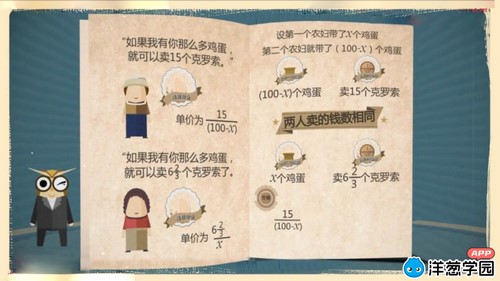 "如果我有你那么多鸡蛋，
就可以卖15个克罗索。"
单价为 15/(100-X)
"如果我有你那么多鸡蛋，
就可以卖6 2/3个克罗索了。
单价为 6 2/3/X
设第一个农妇带了X个鸡蛋
第二个农妇就带了（100-X）个鸡蛋
(100-X)个鸡蛋 卖15个克罗索
两人卖的钱数相同
X个鸡蛋 卖6 2/3个克罗索
15/(100-X)
APP
洋葱学园